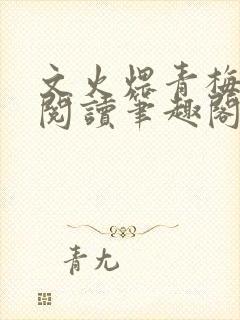 文火煨青梅
閱讀筆趣閣
青尢